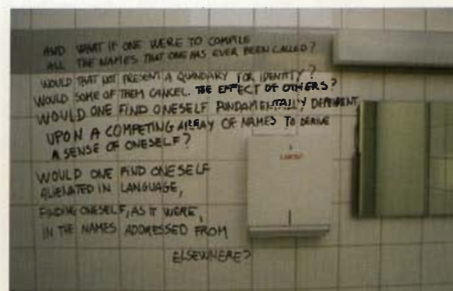 AND WHAT IF ONE WERE TO COMPILE
ALL THE NAMES THAT ONE HAS EVER BEEN CALLED?
WOULD THAT NOT PRESENT A QUANDARY FOR IDENTITY?
WOULD SOME OF THEM CANCEL THE EFFECT OF OTHERS?
WOULD ONE FIND ONESELF FUNDAMENTALLY DEPENDENT
UPON A COMPETING ARRAY OF NAMES TO DERIVE
A SENSE OF ONESELF?
WOULD ONE FIND ONESELF
ALIENATED IN LANGUAGE,
FINDING ONESELF, AS IT WERE,
IN THE NAMES ADDRESSED FROM
ELSEWHERE?